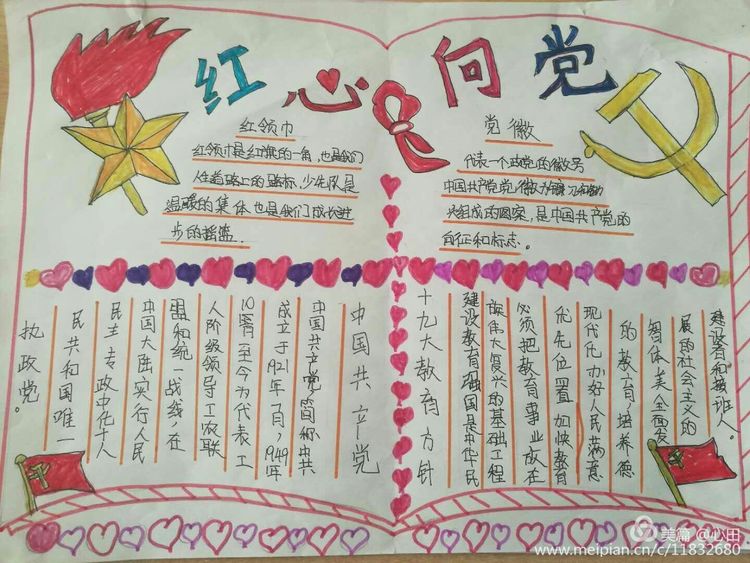 红心向党
红领巾
红领巾是红旗的一角，也是我们
人生道路上的路标，少先队是
温暖的集体也是我们成长进
步的摇篮。
党徽
代表一个政党的徽号
中国共产党党徽为镰刀和锤
头组成的图案，是中国共产党的
自征和标志。
中国共产党
中国共产党，简称中共
成立于1921年7月，1949年
10月至今为代表工
人阶级领导工农联
盟和统一战线，在
中国大陆实行人民
民主专政中华人
民共和国唯一
执政党。
十九大教育方针
建设教育强国是中华民
族伟大复兴的基础工程
必须把教育事业放在
优先位置 加快教育
现代化 办好人民满意
的教育，培养德
智体美全面发
展的社会主义的
建设者和接班人。
美篇 @心田
www.meipian.cn/c/11832680